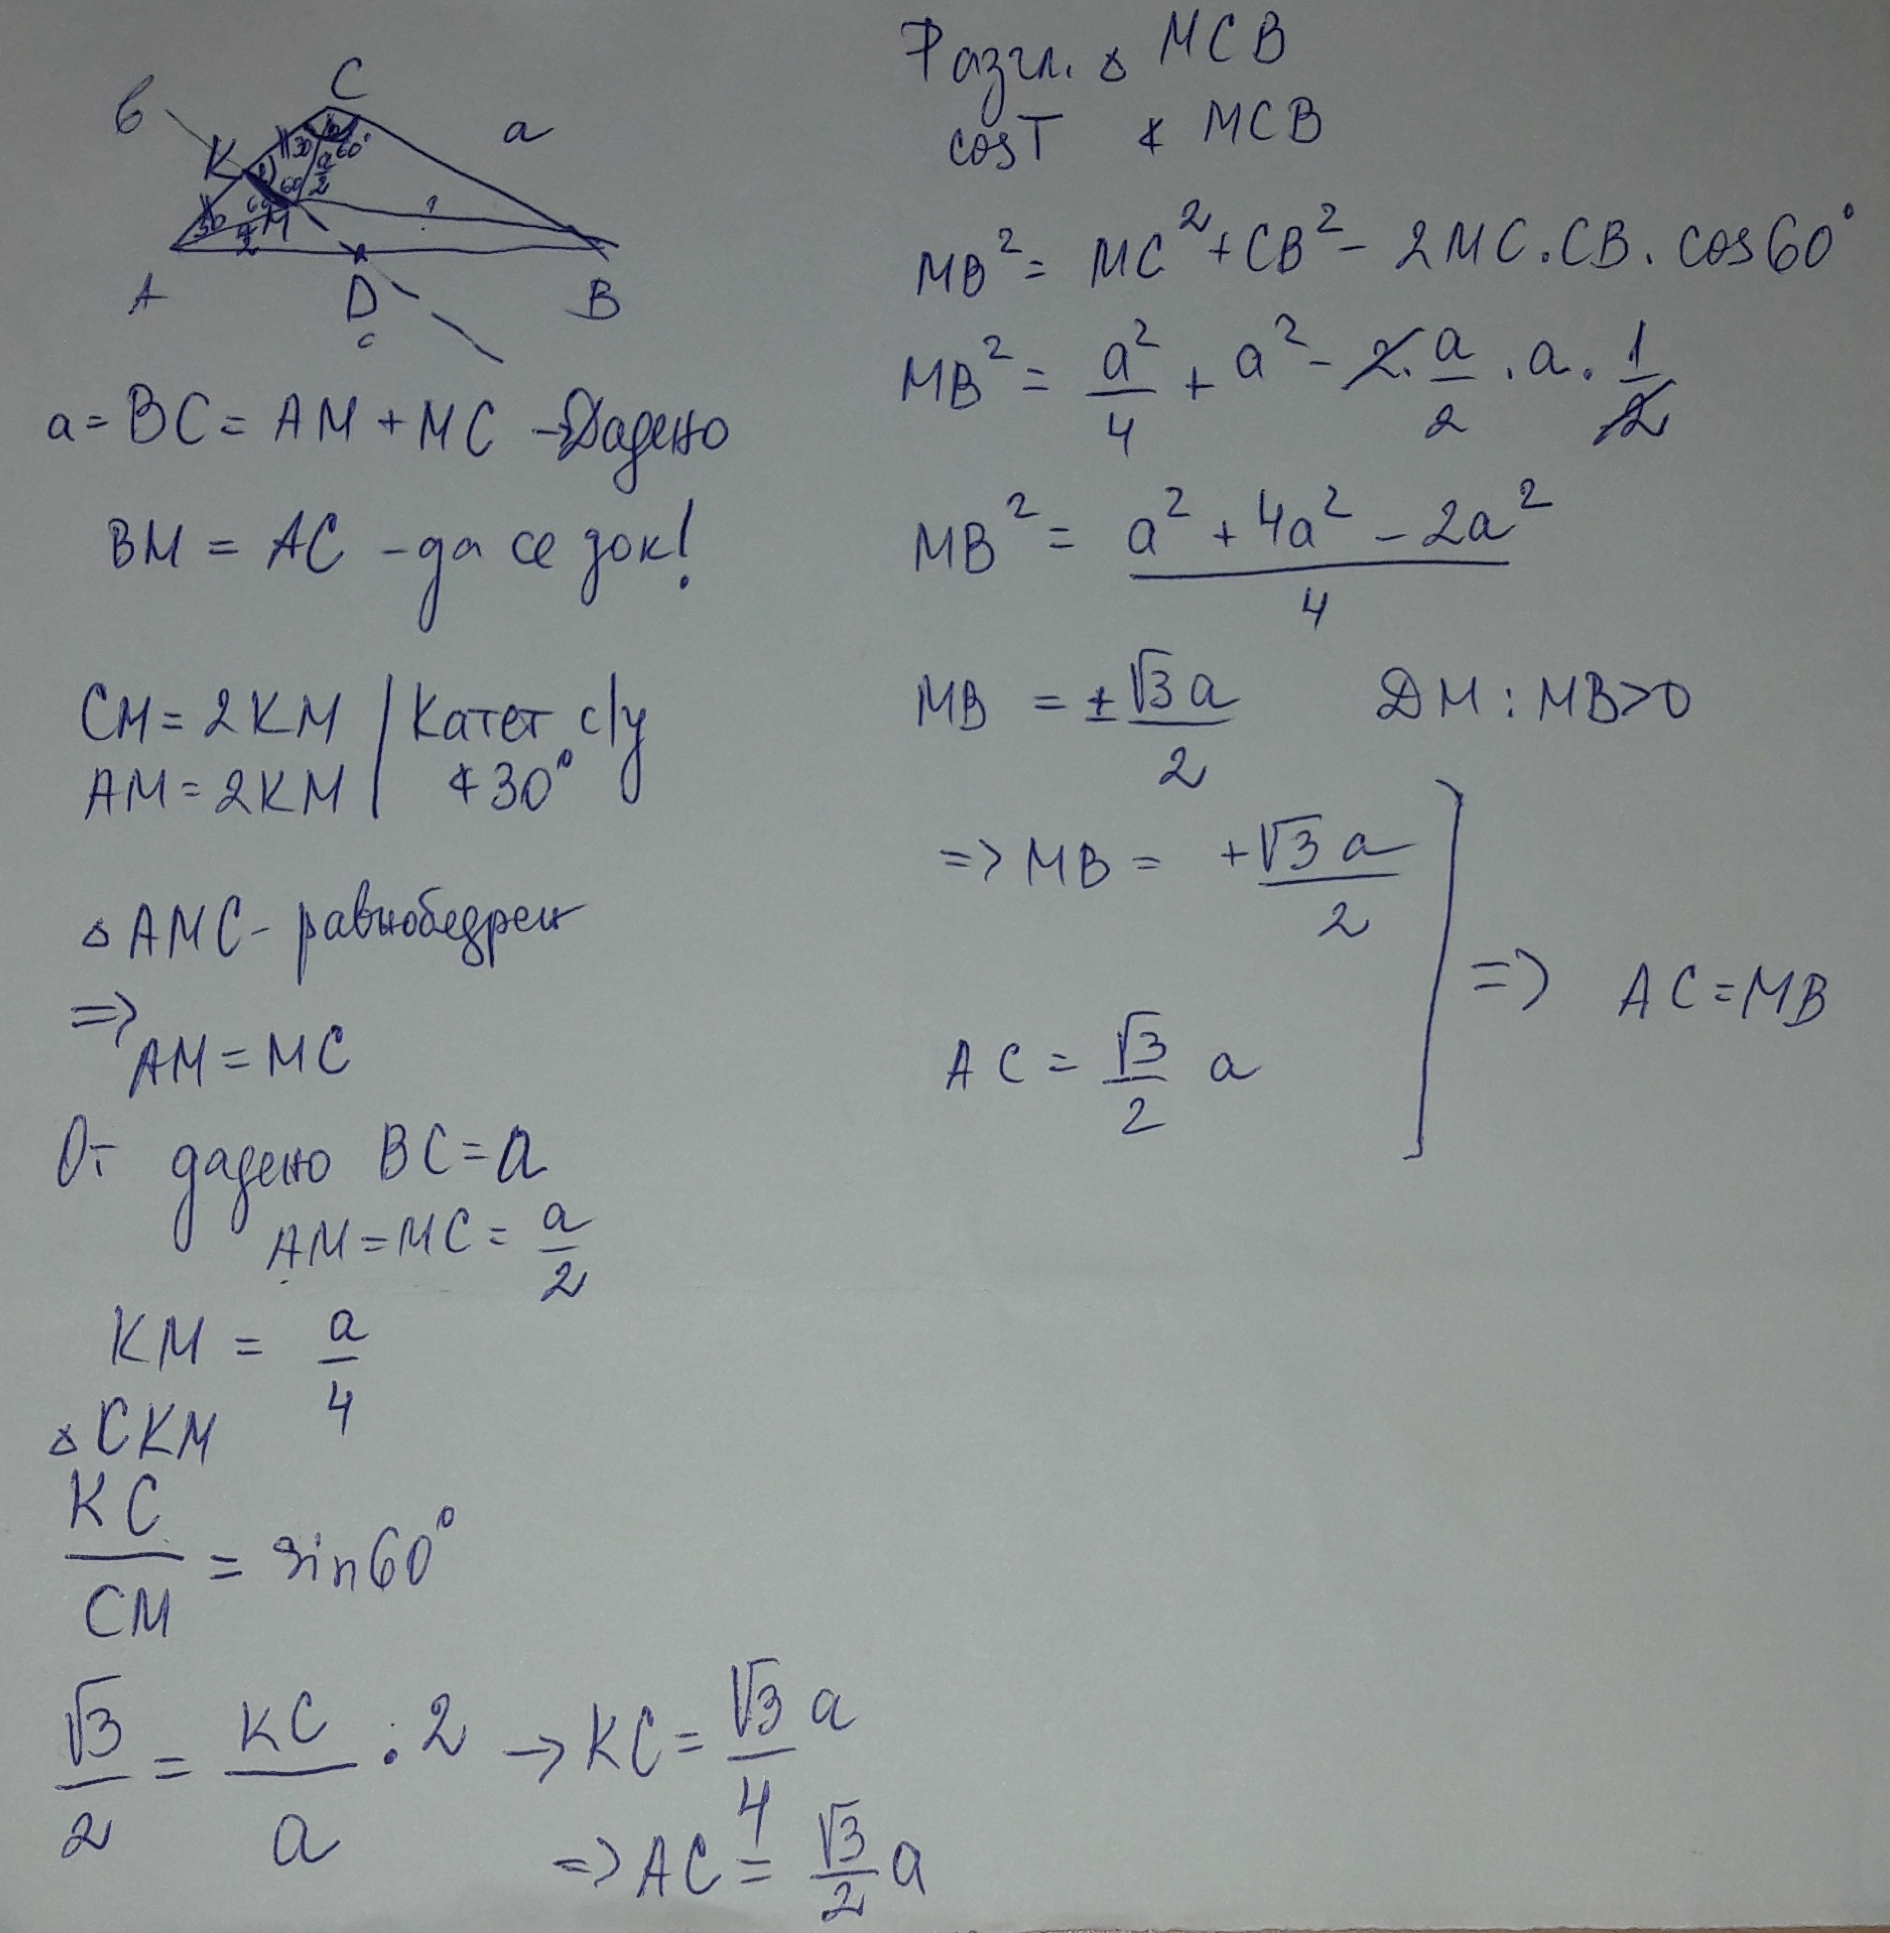 C
б
a
K
30
60°
a/2
60
60
30
M
a/2
?
A
D
B
c
a = BC = AM + MC → Дадено
BM = AC - да се док!
CM = 2KM | Катет с/у
AM = 2KM | ∢30°
△ AMC - равнобедрен
=>
AM = MC
От дадено BC = a
AM = MC = a/2
KM = a/4
△ CKM
KC/CM = sin60°
√3/2 = KC/a : 2 → KC = √3a/4
=> AC = √3/2 a
Разгл. △ MCB
cosT ∢ MCB
MB² = MC² + CB² - 2MC.CB. cos60°
MB² = a²/4 + a² - 2. a/2 . a. 1/2
MB² = (a² + 4a² - 2a²)/4
MB = ± √3a/2 ДМ: MB>0
=> MB = +√3a/2
=> AC = MB
AC = √3/2 a